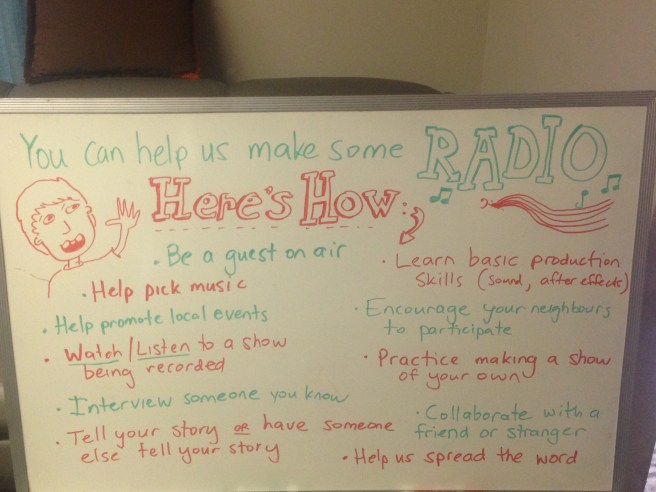 You can help us make some RADIO
Here's How:
· Be a guest on air
· Help pick music
· Help promote local events
· Watch/Listen to a show
being recorded
· Interview someone you know
· Tell your story OR have someone
else tell your story
· Learn basic production
skills (sound, after effects)
· Encourage your neighbours
to participate
· Practice making a show
of your own
· Collaborate with a
friend or stranger
· Help us spread the word